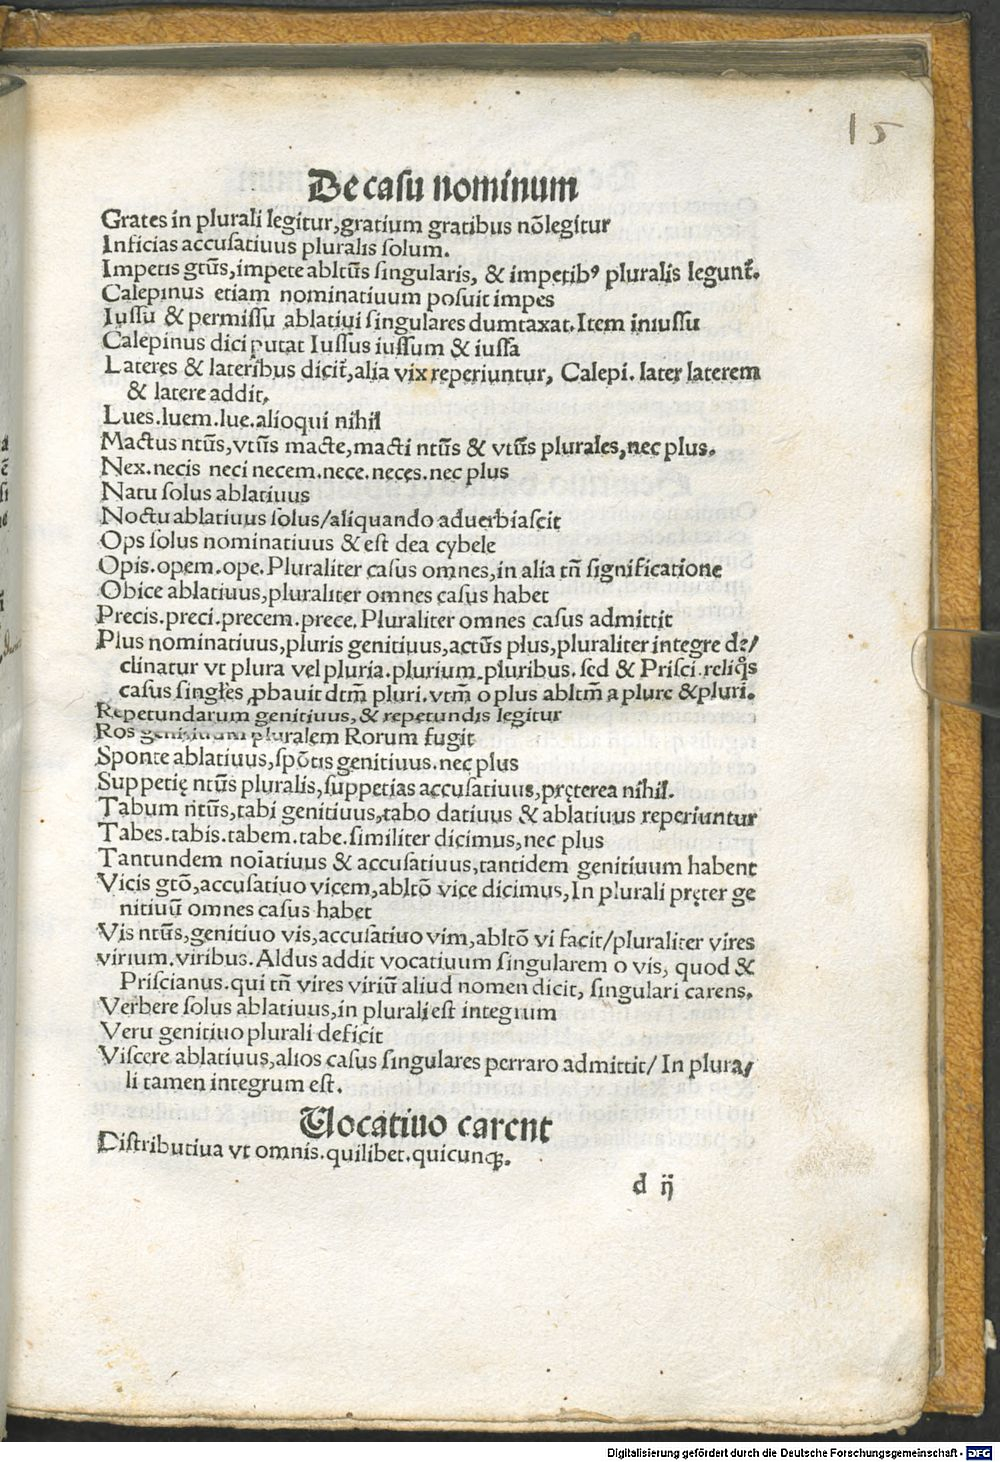 15
De casu nominum
Grates in plurali legitur,gratium gratibus nõlegitur
Inficias accusatiuus pluralis solum.
Impetis gtũs,impete abltũs singularis, & impetibꝰ pluralis legunt᷑.
Calepinus etiam nominatiuum posuit impes
Iussu & permissu ablatiui singulares dumtaxat.Item iniussu
Calepinus dici putat Iussus iussum & iussa
Lateres & lateribus dicit᷑,alia vix reperiuntur, Calepi. later laterem
& latere addit.
Lues.luem.lue.alioqui nihil
Mactus ntũs,vtũs macte,macti ntũs & vtũs plurales,nec plus.
Nex.necis neci necem.nece.neces.nec plus
Natu solus ablatiuus
Noctu ablatiuus solus/aliquando aduerbiascit
Ops solus nominatiuus & est dea cybele
Opis.opem.ope.Pluraliter casus omnes,in alia tñ significatione
Obice ablatiuus,pluraliter omnes casus habet
Precis.preci.precem.prece.Pluraliter omnes casus admittit
Plus nominatiuus,pluris genitiuus,actũs plus,pluraliter integre de/
clinatur vt plura vel pluria.plurium.pluribus. sed & Prisci.reliq̊s
casus singłes ꝓbauit dtm̃ pluri.vtm̃ o plus abltm̃ a plure & pluri.
Repetundarum genitiuus,& repetundis legitur
Ros genitiuum pluralem Rorum fugit
Sponte ablatiuus,spõtis genitiuus.nec plus
Suppetię ntũs pluralis,suppetias accusatiuus,pręterea nihil.
Tabum ntũs,tabi genitiuus,tabo datiuus & ablatiuus reperiuntur
Tabes.tabis.tabem.tabe.similiter dicimus,nec plus
Tantundem noĩatiuus & accusatiuus,tantidem genitiuum habent
Vicis gtõ,accusatiuo vicem,abltõ vice dicimus,In plurali pręter ge
nitiuũ omnes casus habet
Vis ntũs,genitiuo vis,accusatiuo vim,abltõ vi facit/pluraliter vires
virium.viribus.Aldus addit vocatiuum singularem o vis, quod &
Priscianus.qui tñ vires viriũ aliud nomen dicit, singulari carens.
Verbere solus ablatiuus,in plurali est integrum
Veru genitiuo plurali deficit
Viscere ablatiuus,alios casus singulares perraro admittit/ In plura/
li tamen integrum est.
Uocatiuo carent
Distributiua vt omnis.quilibet.quicunqꝫ.
d ij
Digitalisierung gefördert durch die Deutsche Forschungsgemeinschaft - DFG